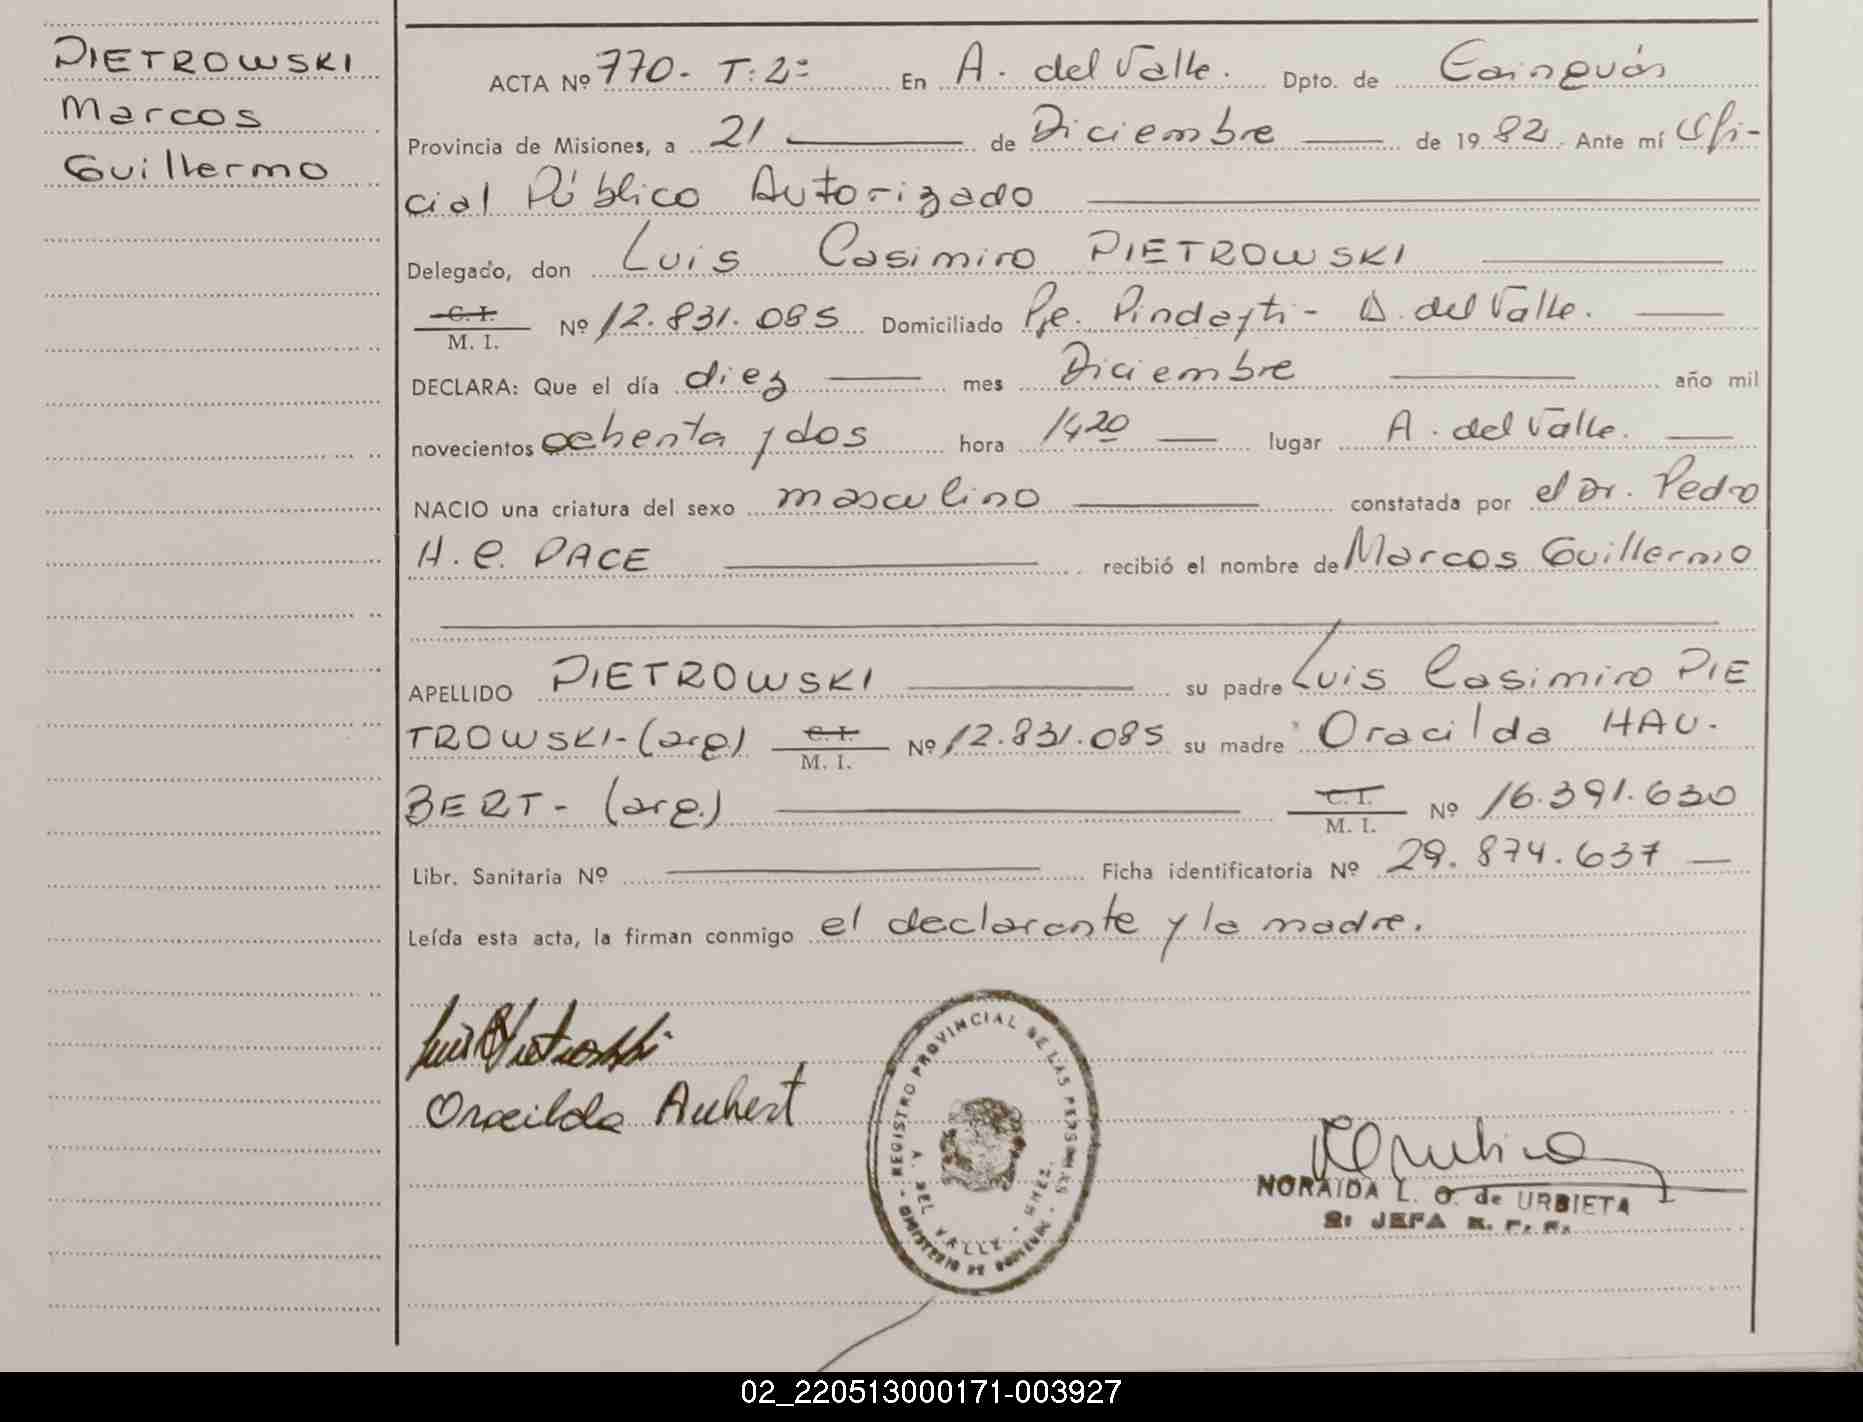 PIETROWSKI
Marcos
Guillermo
ACTA Nº 770. T: 2º En A. del Valle. Dpto. de Cainguás
Provincia de Misiones, a 21 de Diciembre de 1982. Ante mí Ofi-
cial Público Autorizado
Delegado, don Luis Casimiro PIETROWSKI
C. I.
M. I. Nº 12.831.085 Domiciliado Pje. Pindayti - A. del Valle.
DECLARA: Que el día diez mes Diciembre año mil
novecientos ochenta y dos hora 1420 lugar A. del Valle.
NACIO una criatura del sexo masculino constatada por el Dr. Pedro
H. C. PACE recibió el nombre de Marcos Guillermo
APELLIDO PIETROWSKI su padre Luis Casimiro PIE
TROWSKI-(arg) C. I. M. I. Nº 12.831.085 su madre Oracilda HAU-
BERT - (arg.) C. I. M. I. Nº 16.391.630
Libr. Sanitaria Nº Ficha identificatoria Nº 29.874.637
Leída esta acta, la firman conmigo el declarante y la madre.
Oracilda Aubert
REGISTRO PROVINCIAL DE LAS PERSONAS
A. DEL VALLE
MINISTERIO DE GOBIERNO
NORAIDA L. O. de URBIETA
JEFA
02_220513000171-003927